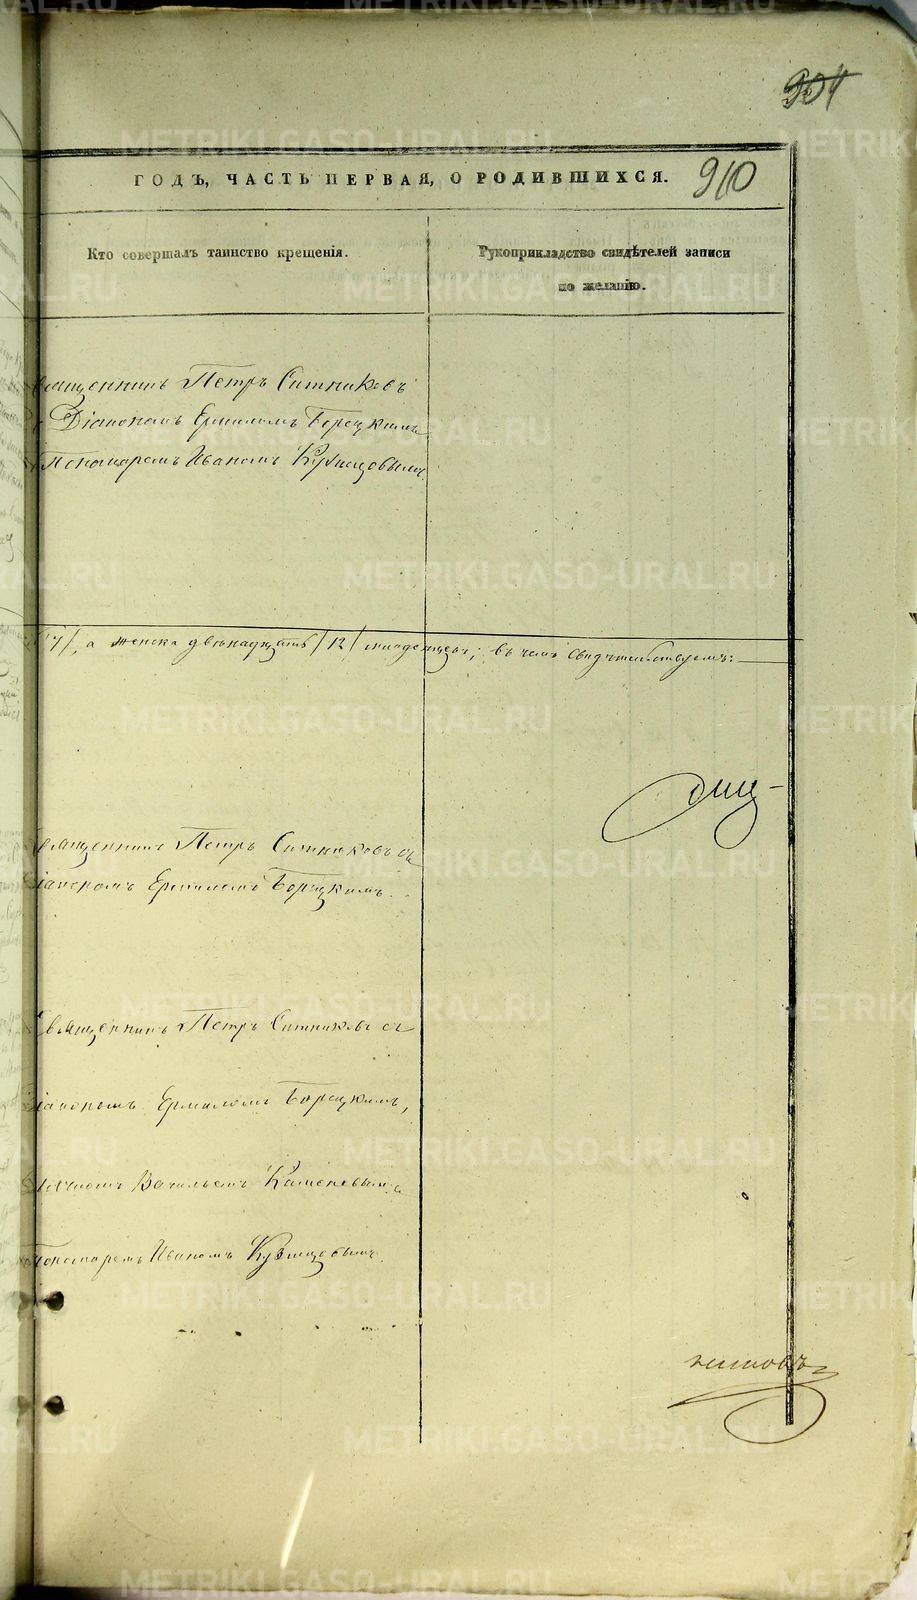 904
910
ГОДЪ, ЧАСТЬ ПЕРВАЯ, О РОДИВШИХСЯ.
Кто совершалъ таинство крещенія.
Рукоприкладство свидѣтелей записи
по желанію.
Священникъ Петръ Ситниковъ
Діакономъ Ермиломъ Борецкимъ
Пономаремъ Иваномъ Кузнецовымъ
/7/, а женска двѣнадцать /12/ младенцевъ; въ чемъ свидѣтельствуемъ:
Священникъ Петръ Ситниковъ съ
Діакономъ Ермиломъ Борецкимъ.
Священникъ Петръ Ситниковъ съ
Діакономъ Ермиломъ Борецкимъ,
Васильемъ Каменевымъ
Пономаремъ Иваномъ Кузнецовымъ.
METRIKI.GASO-URAL.RU